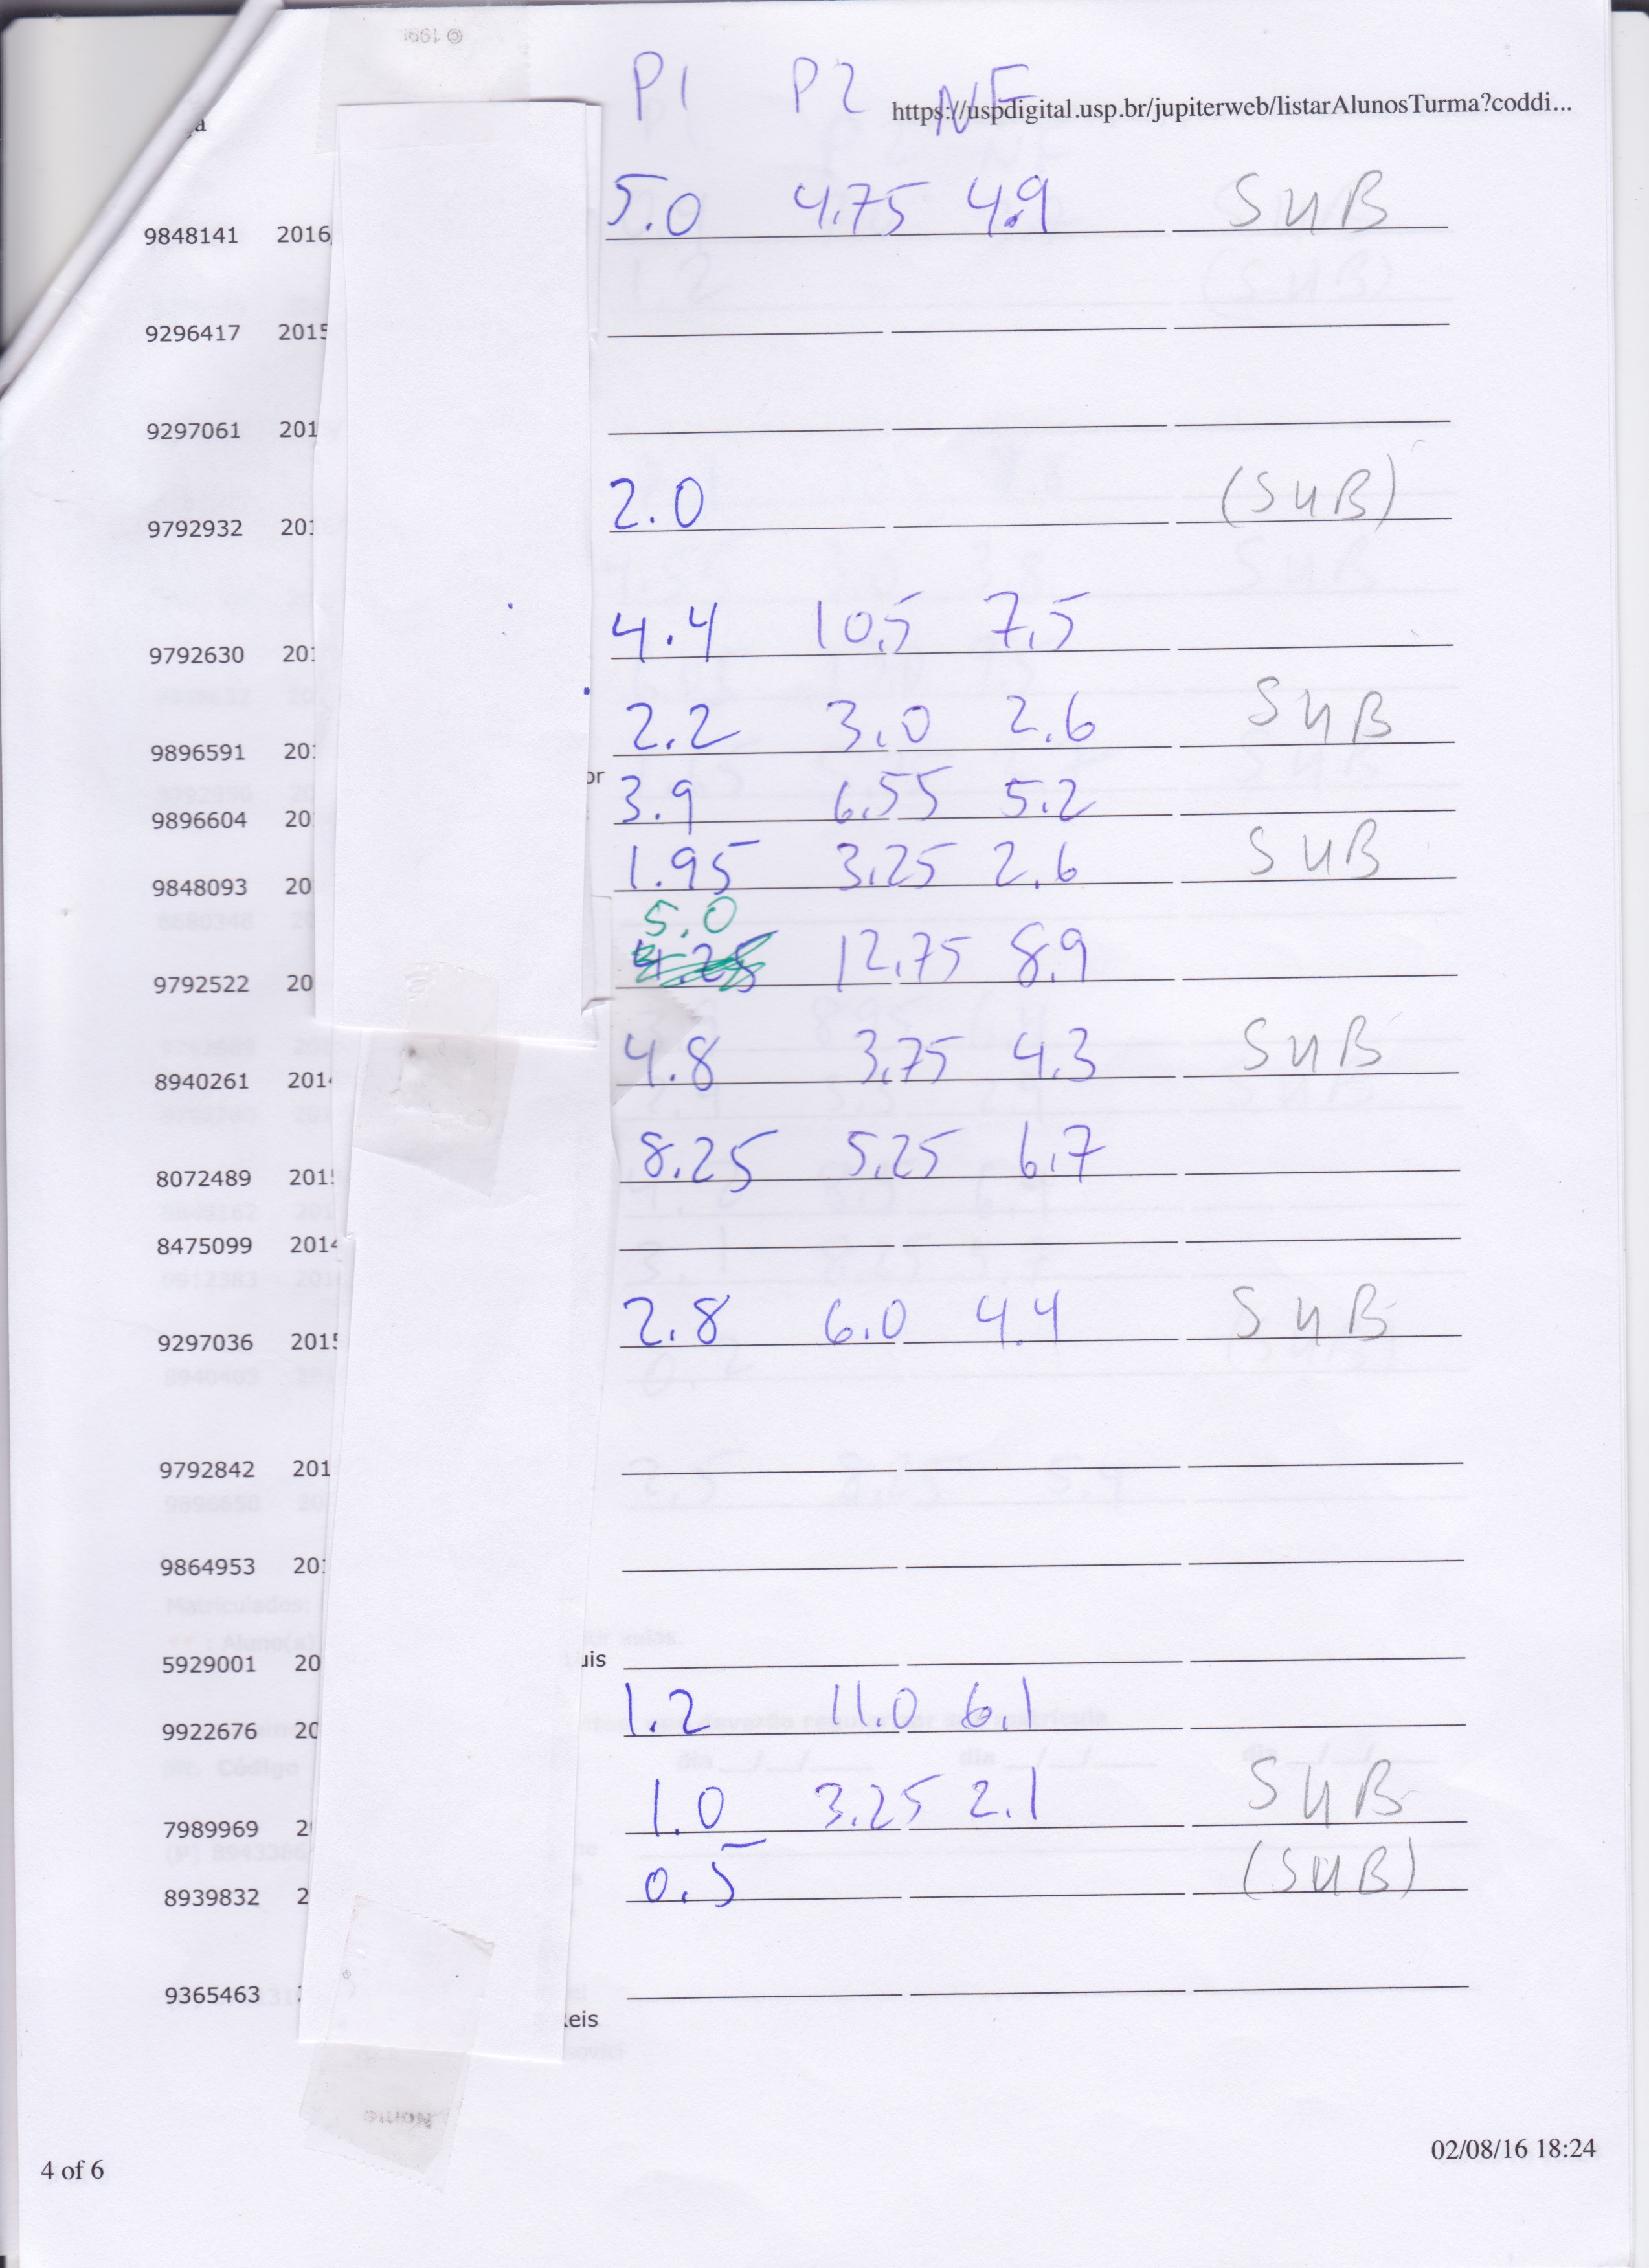 P1 P2 NF https://uspdigital.usp.br/jupiterweb/listarAlunosTurma?coddi...
9848141 2016 5.0 4.75 4.9 SUB
9296417 2015
9297061 201
9792932 201 2.0 (SUB)
9792630 201 4.4 10.5 7.5
9896591 201 2.2 3.0 2.6 SUB
or
9896604 20 3.9 6.55 5.2
9848093 20 1.95 3.25 2.6 SUB
5.0
9792522 20 4.25 12.75 8.9
8940261 2014 4.8 3.75 4.3 SUB
8072489 2015 8.25 5.25 6.7
8475099 2014
9297036 2015 2.8 6.0 4.4 SUB
9792842 201
9864953 201
5929001 20 uis
9922676 20 1.2 11.0 6.1
7989969 2 1.0 3.25 2.1 SUB
8939832 2 0.5 (SUB)
9365463
Reis
02/08/16 18:24
4 of 6